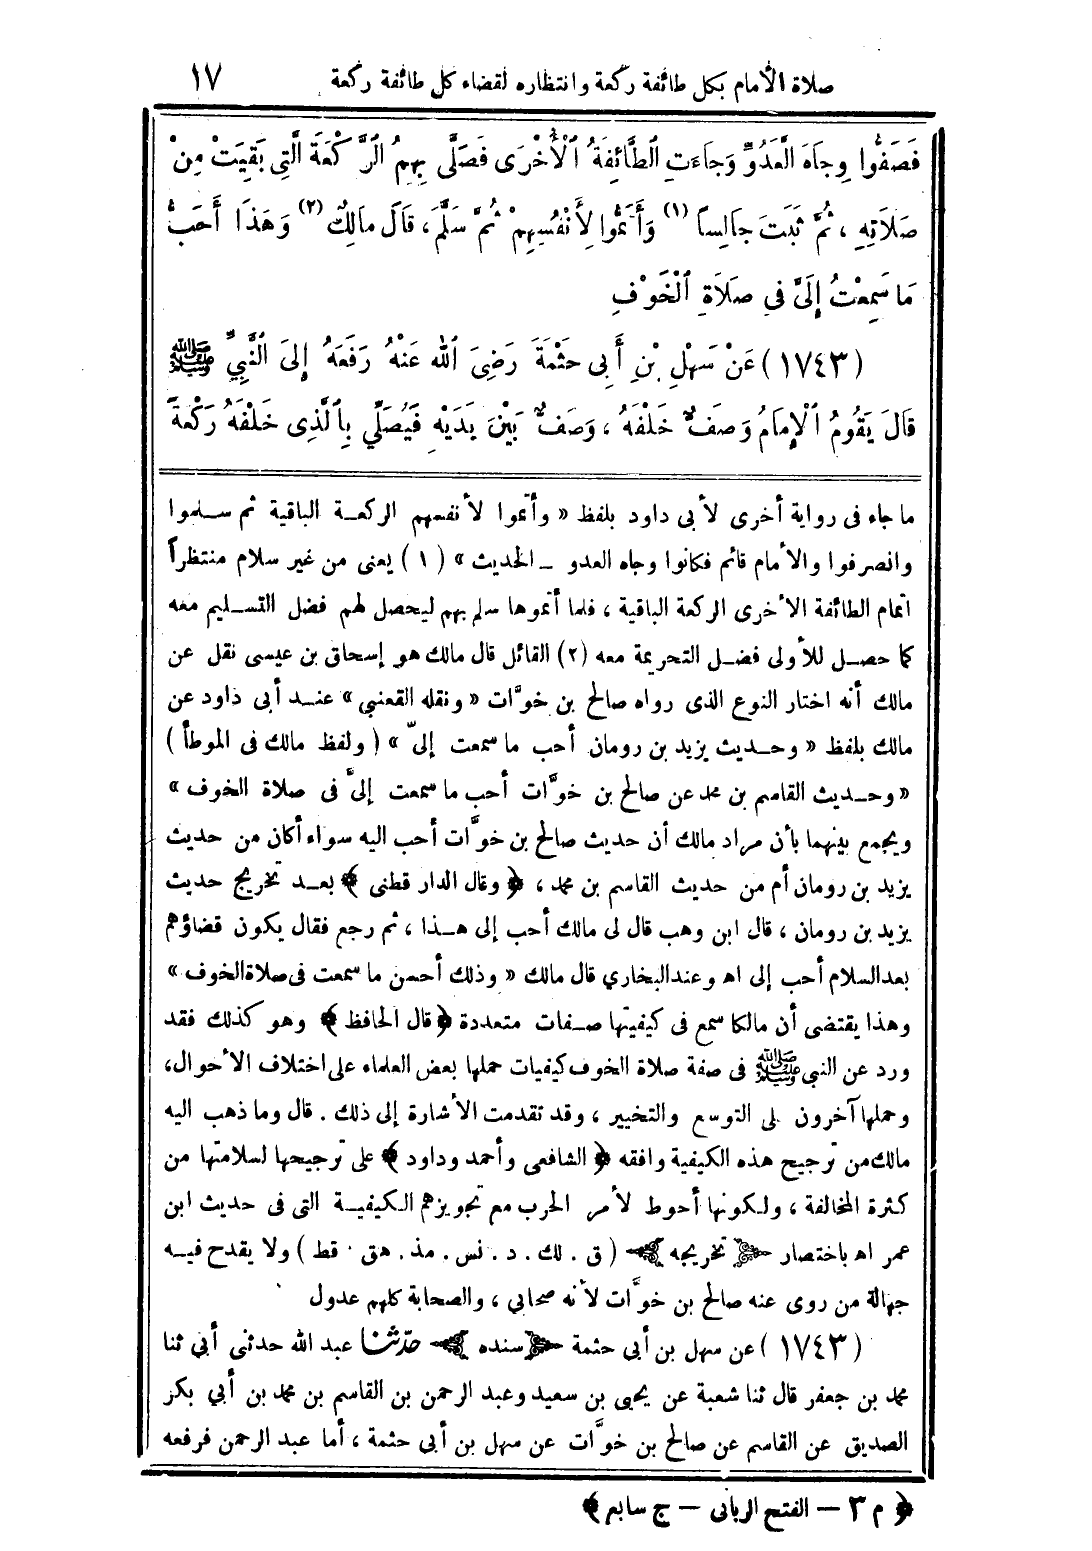 صلاة الأمام بكل طائفة ركعة وانتظاره لقضاء كل طائفة ركعة ١٧
فَصَفُّوا وِجَاهَ الْعَدُوِّ وَجَاءَتِ الطَّائِفَةُ الْأُخْرَى فَصَلَّى بِهِمُ الرَّكْعَةَ الَّتِى بَقِيَتْ مِنْ
صَلَاتِهِ ، ثُمَّ ثَبَتَ جَالِسًا (١) وَأَتَمُّوا لِأَنْفُسِهِمْ ثُمَّ سَلَّمَ، قَالَ مَالِكٌ (٢) وَهَذَا أَحَبُّ
مَا سَمِعْتُ إِلَىَّ فِى صَلَاةِ الْخَوْفِ
(١٧٤٣) عَنْ سَهْلِ بْنِ أَبِى حَثْمَةَ رَضِىَ اللهُ عَنْهُ رَفَعَهُ إِلىَ النَّبِيِّ ﷺ
قَالَ يَقُومُ الْإِمَامُ وَصَفٌّ خَلْفَهُ ، وَصَفٌّ بَيْنَ يَدَيْهِ فَيُصَلِّي بِالَّذِى خَلْفَهُ رَكْعَةً
ما جاء فى رواية أخرى لأبى داود بلفظ « وأتموا لأنفسهم الركعة الباقية ثم سلموا
وانصرفوا والأمام قائم فكانوا وجاه العدو ــ الحديث » (١) يعنى من غير سلام منتظراً
اتمام الطائفة الأخرى الركعة الباقية ، فلما أتموها سلم بهم ليحصل لهم فضل التسليم معه
كما حصل للأولى فضل التحريمة معه (٢) القائل قال مالك هو إسحاق بن عيسى نقل عن
مالك أنه اختار النوع الذى رواه صالح بن خوَّات « ونقله القعنبي » عند أبى داود عن
مالك بلفظ « وحديث يزيد بن رومان أحب ما سمعت إلىّ » (ولفظ مالك فى الموطأ)
« وحديث القاسم بن محمد عن صالح بن خوَّات أحب ما سمعت إلىَّ فى صلاة الخوف »
ويجمع بينهما بأن مراد مالك أن حديث صالح بن خوَّات أحب اليه سواء أكان من حديث
يزيد بن رومان أم من حديث القاسم بن محمد ، ﴿ وقال الدار قطنى ﴾ بعد تخريج حديث
يزيد بن رومان ، قال ابن وهب قال لى مالك أحب إلى هذا ، ثم رجع فقال يكون قضاؤهم
بعد السلام أحب إلى اه وعند البخاري قال مالك « وذلك أحسن ما سمعت فى صلاة الخوف »
وهذا يقتضى أن مالكا سمع فى كيفيتها صفات متعددة ﴿ قال الحافظ ﴾ وهو كذلك فقد
ورد عن النبى ﷺ فى صفة صلاة الخوف كيفيات حملها بعض العلماء على اختلاف الأحوال،
وحملها آخرون لى التوسع والتخيير ، وقد تقدمت الأشارة إلى ذلك . قال وما ذهب اليه
مالك من ترجيح هذه الكيفية وافقه ﴿ الشافعى وأحمد وداود ﴾ على ترجيحها لسلامتها من
كثرة المخالفة ، ولكونها أحوط لأمر الحرب مع تجويزهم الكيفية التى فى حديث ابن
عمر اه باختصار تخريجه (ق . لك . د . نس . مذ . هق . قط) ولا يقدح فيه
جهالة من روى عنه صالح بن خوَّات لأنه صحابي ، والصحابة كلهم عدول
(١٧٤٣) عن سهل بن أبى حثمة سنده حدّثنا عبد الله حدثنى أبى ثنا
محمد بن جعفر قال ثنا شعبة عن يحيى بن سعيد وعبد الرحمن بن القاسم بن محمد بن أبي بكر
الصديق عن القاسم عن صالح بن خوَّات عن سهل بن أبى حثمة ، أما عبد الرحمن فرفعه
﴿ م ٣ — الفتح الربانى — ج سابع ﴾